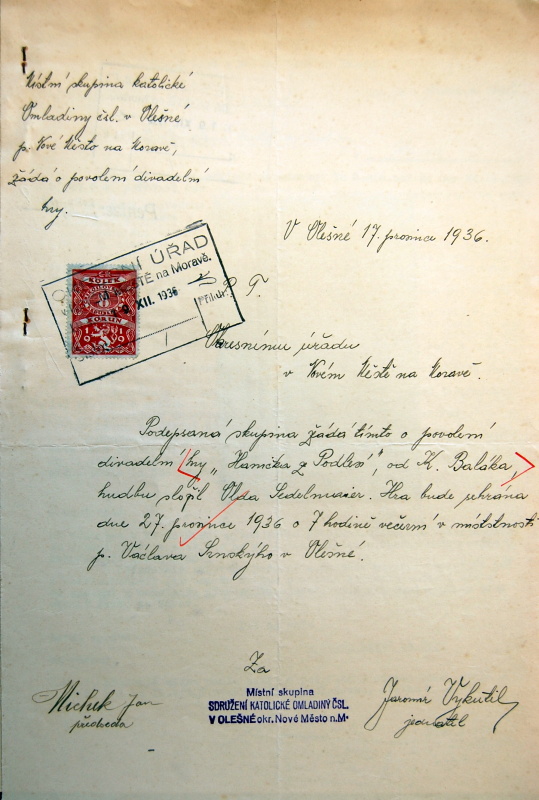 Místní skupina katolické
Omladiny čsl. v Olešné
p. Nové Město na Moravě,
žádá o povolení divadelní
hry.
V Olešné 17. prosince 1936.
ÚŘAD
na Moravě.
XII. 1936
Příl.
KOLEK
KORUN
P. T.
Okresnímu úřadu
v Novém Městě na Moravě.
Podepsaná skupina žádá tímto o povolení
divadelní hry „Hanička z Podlesí", od K. Baláka,
hudbu složil Olda Sedelmaier. Hra bude sehrána
dne 27. prosince 1936 o 7 hodině večerní v místnosti
p. Václava Smskýho v Olešné.
Za
Místní skupina
SDRUŽENÍ KATOLICKÉ OMLADINY ČSL.
V OLEŠNÉ okr. Nové Město n.M.
Michek Jan
předseda
Jaromír Vykutil
jednatel